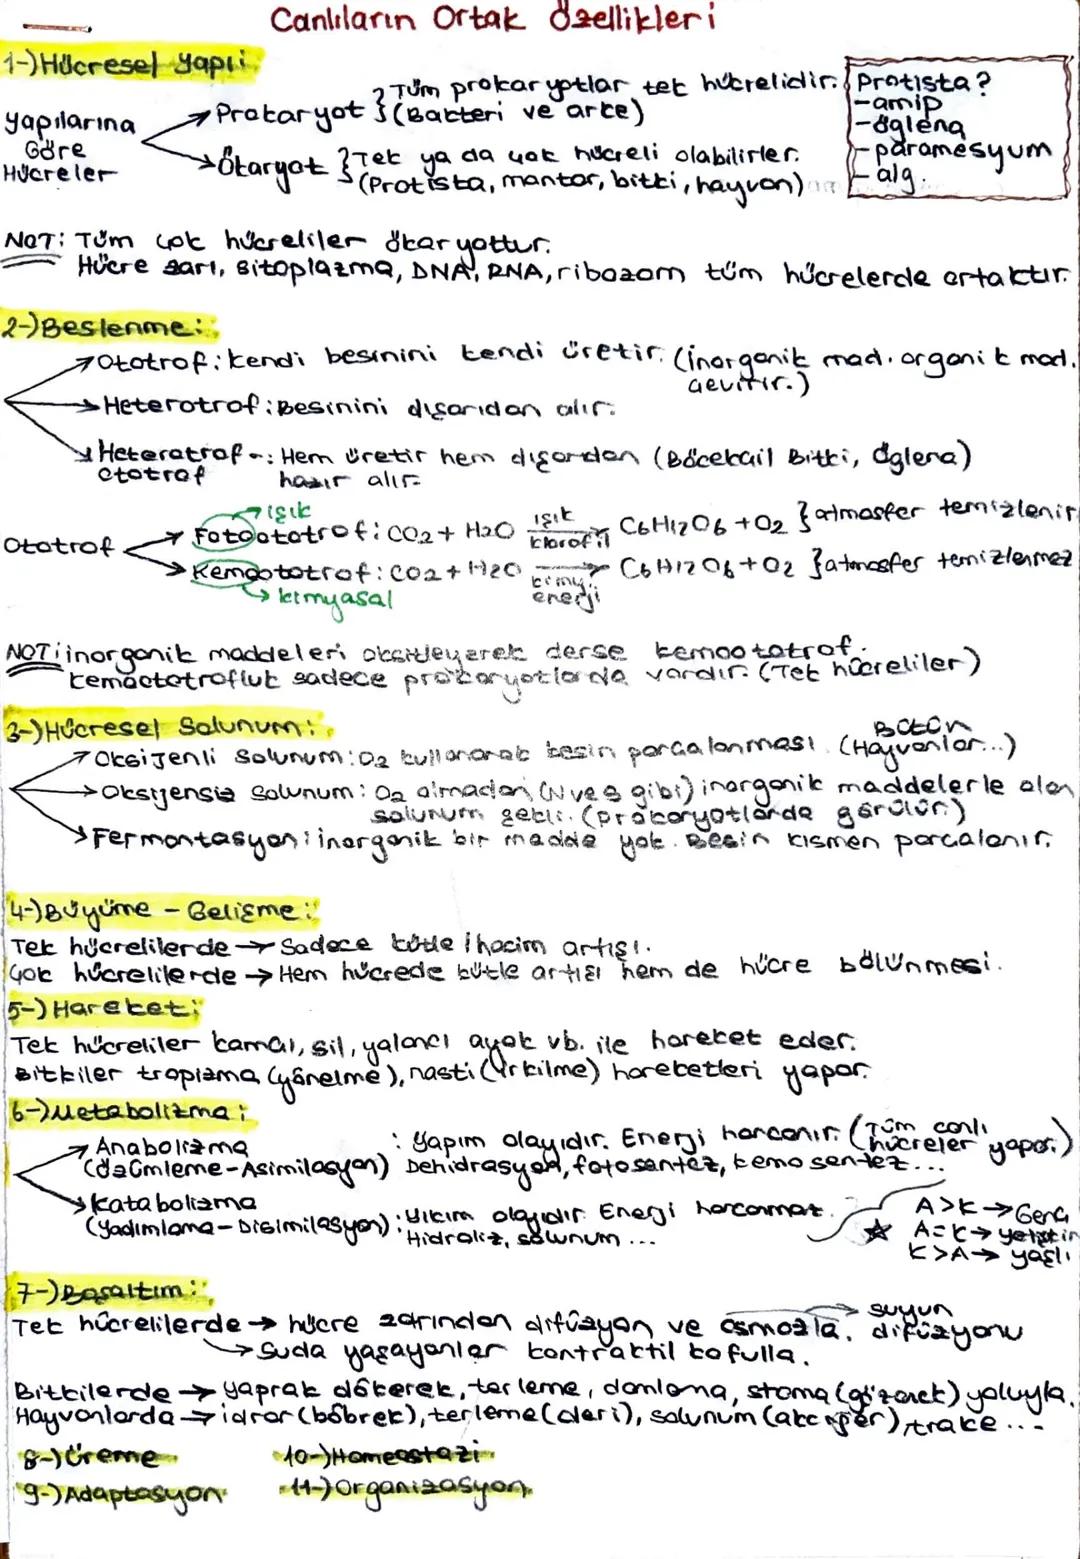 Canlıların Ortak Özellikleri
1-)Hücresel Yapı:
Yapılarına Göre Hücreler
→Prokaryot } Tüm prokaryotlar tek hücrelidir. (Bakteri ve arke)
→Ökaryot } Tek ya da çok hücreli olabilirler. (Protista, mantar, bitki, hayvan)
Protista?
-amip
-öglena
-paramesyum
-alg.
NOT: Tüm çok hücreliler ökaryottur.
Hücre zarı, sitoplazma, DNA, RNA, ribozom tüm hücrelerde ortaktır.
2-)Beslenme:
→Ototrof: kendi besinini kendi üretir. (İnorganik mad. organik mad. çevirir.)
→Heterotrof: Besinini dışarıdan alır.
→Heterotrof - ototrof: Hem üretir hem dışardan hazır alır. (Böcekçil Bitki, Öglena)
Ototrof
→ışık
→Fotoototrof: CO2 + H2O ışık klorofil → C6H12O6 + O2 } atmosfer temizlenir
→Kemoototrof: CO2 + H2O kimy. enerji → C6H12O6 + O2 } atmosfer temizlenmez
→kimyasal
NOT: inorganik maddeleri oksitleyerek derse kemoototrof.
kemoototrofluk sadece prokaryotlarda vardır. (Tek hücreliler)
3-)Hücresel Solunum:
→Oksijenli Solunum: O2 kullanarak besin parçalanması. (Bütün Hayvanlar...)
→Oksijensiz solunum: O2 olmadan (N ve S gibi) inorganik maddelerle olan
solunum şekli. (prokaryotlarda görülür.)
→Fermantasyon: inorganik bir madde yok. Besin kısmen parçalanır.
4-)Büyüme - Gelişme:
Tek hücrelilerde → Sadece kütle / hacim artışı.
Çok hücrelilerde → Hem hücrede kütle artışı hem de hücre bölünmesi.
5-) Hareket:
Tek hücreliler kamçı, sil, yalancı ayak vb. ile hareket eder.
Bitkiler tropizma (yönelme), nasti (irkilme) hareketleri yapar.
6-)Metabolizma:
→Anabolizma (Özümleme-Asimilasyon) : Yapım olayıdır. Enerji harcanır. (Tüm canlı hücreler yapar.)
Dehidrasyon, fotosentez, kemosentez...
→Katabolizma (Yadımlama-Disimilasyon): Yıkım olayıdır. Enerji harcanmaz.
Hidroliz, solunum ...
A>K → Genç
A=K → yetişkin
K>A → yaşlı
7-)Boşaltım:
Tek hücrelilerde → hücre zarından difüzyon ve osmozla. → suyun difüzyonu
→ Suda yaşayanlar kontraktil kofulla.
Bitkilerde → yaprak dökerek, terleme, damlama, stoma (gözenek) yoluyla.
Hayvanlarda → idrar (böbrek), terleme (deri), solunum (akciğer), trake ...
8-) Üreme
10-)Homeostazi
9-)Adaptasyon
11-)Organizasyon